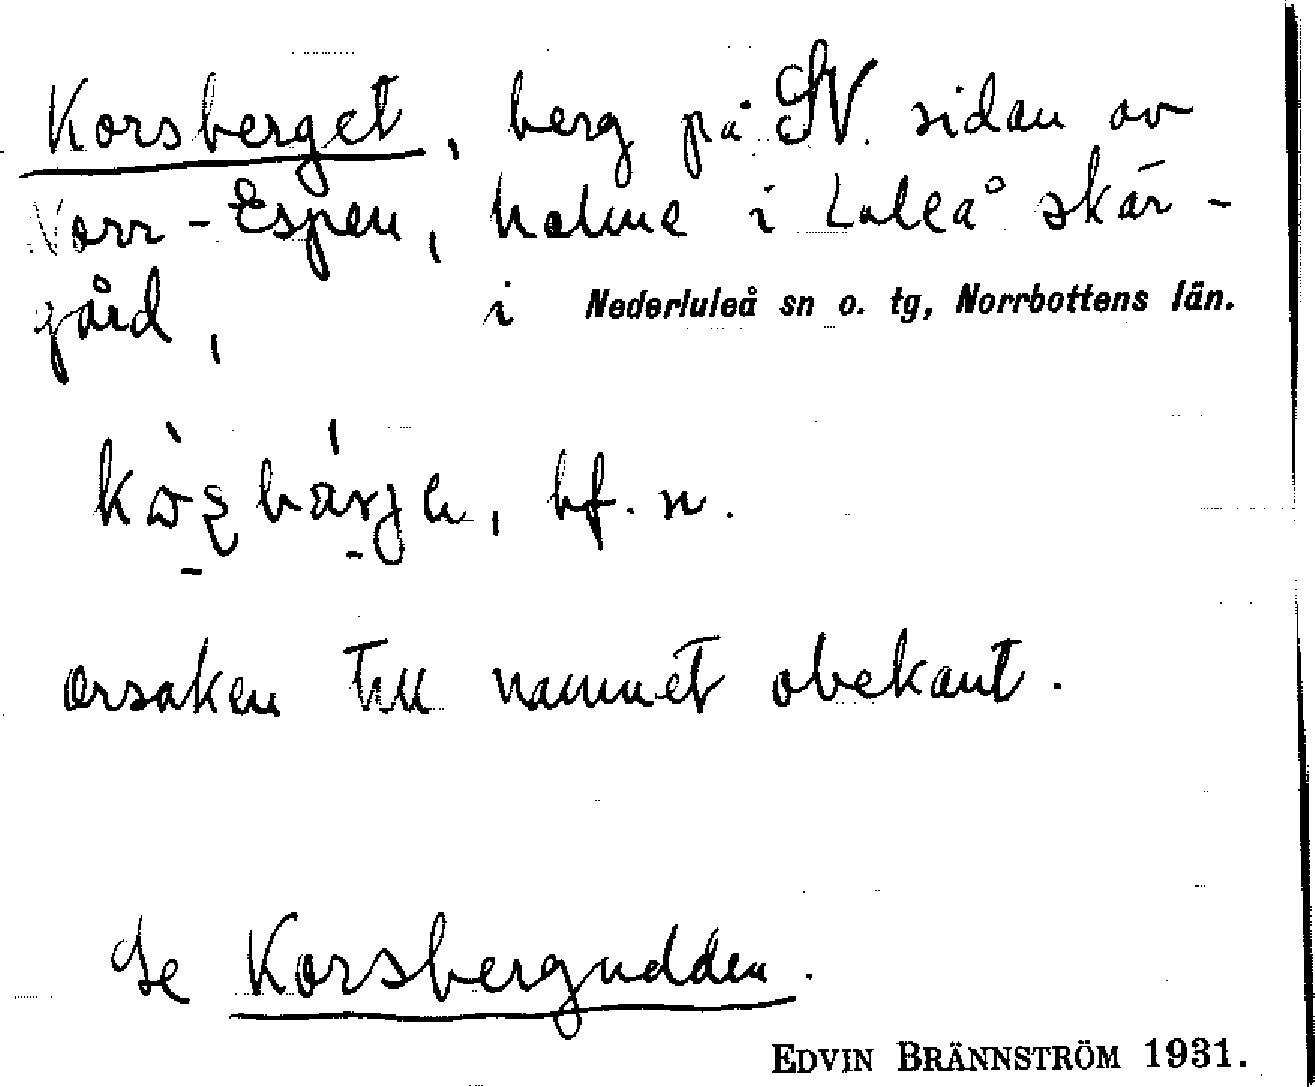 Korsberget, berg på SV. sidan av
Norr-Espen, holme i Luleå skär-
gård, i Nederluleå sn o. tg, Norrbottens län.
bf. n.
orsaken till namnet obekant.
Se Korsbergudden.
EDVIN BRÄNNSTRÖM 1931.